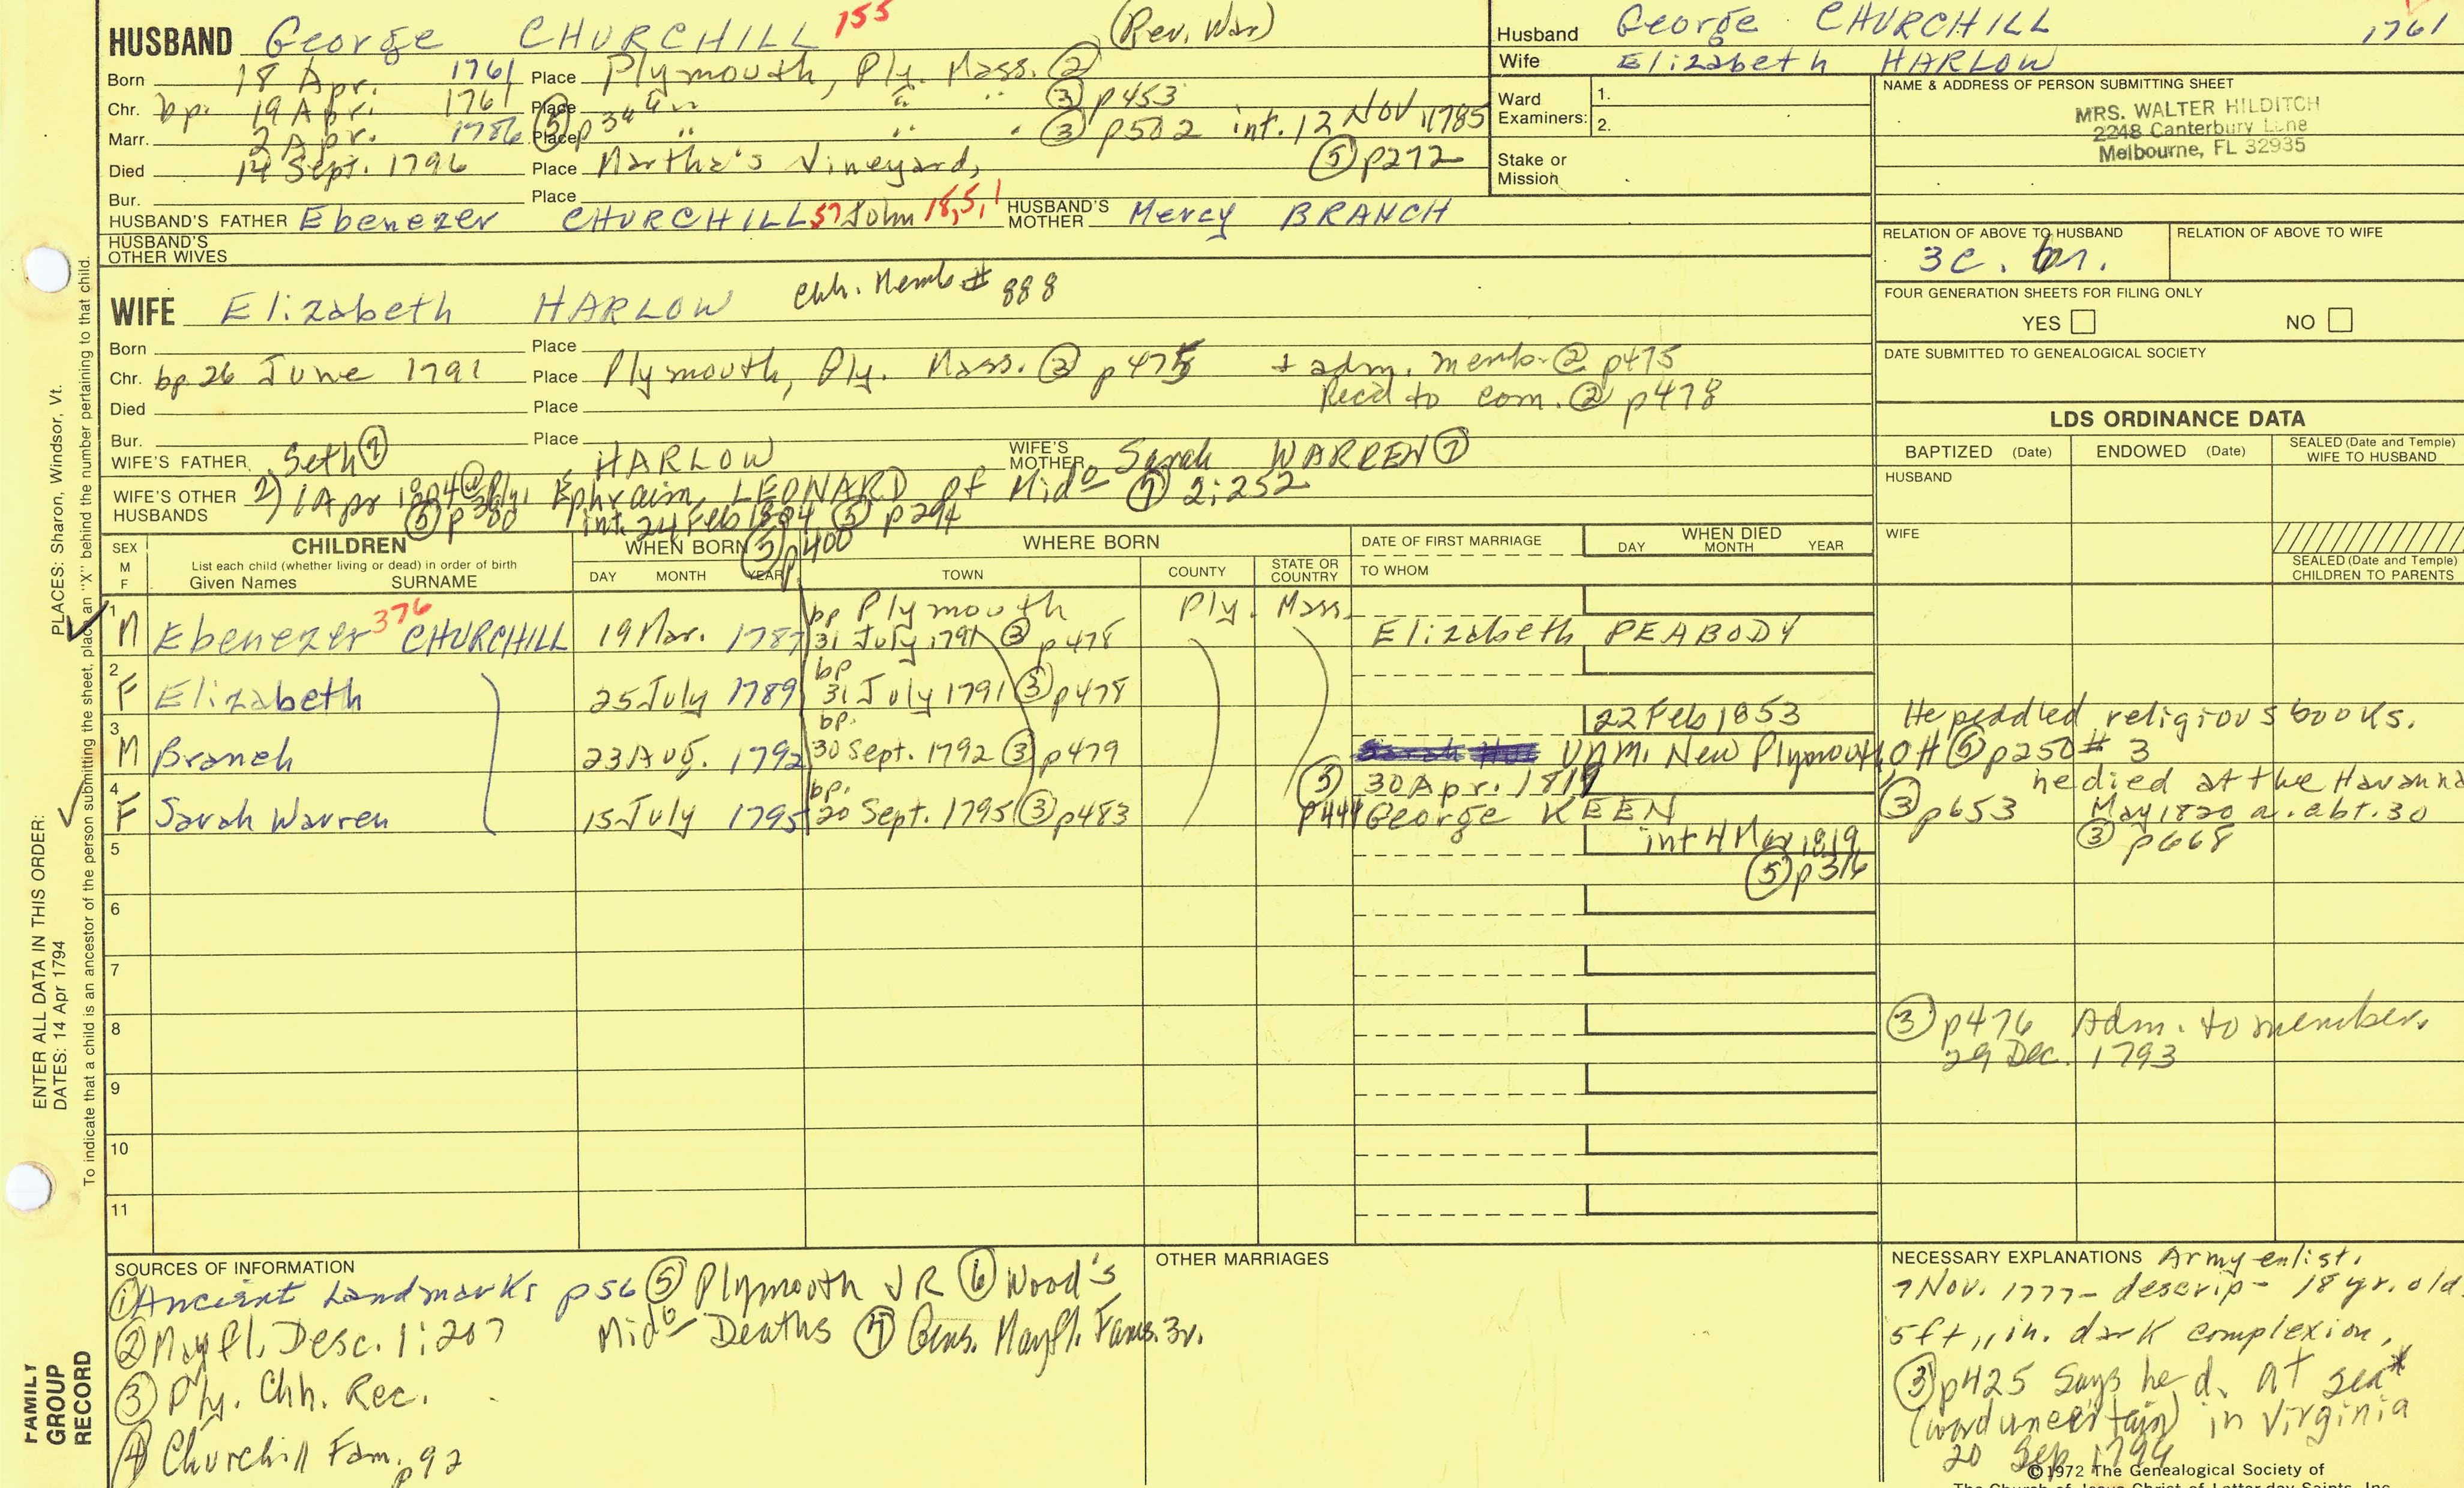 HUSBAND George CHURCHILL 155 (Rev. War)
Born 18 Apr. 1761 Place Plymouth, Ply. Mass. ②
Chr. bp. 19 Apr. 1761 Place " " " ③ p453
Marr. 2 Apr. 1786 Place ⑤ p34 " " " ③ p502 int. 12 Nov 1785
Died 14 Sept. 1796 Place Martha's Vineyard, ⑤ p272
Bur. Place
HUSBAND'S FATHER Ebenezer CHURCHILL 57 John 18,5,1 HUSBAND'S MOTHER Mercy BRANCH
HUSBAND'S OTHER WIVES
WIFE Elizabeth HARLOW Chh. Memb # 888
Born Place
Chr. bp 26 June 1791 Place Plymouth, Ply. Mass. ③ p475 + adm. memb. ② p475
Recd to com. ② p478
Died Place
Bur. Place
WIFE'S FATHER Seth ⑦ HARLOW WIFE'S MOTHER Sarah WARREN ⑦
WIFE'S OTHER HUSBANDS 2) 1 Apr 1804 @ Ply. Ephraim LEONARD of Mido ⑦ 2:252
⑤ p380 int. 24 Feb 1804 ⑤ p294
Husband George CHURCHILL 1761
Wife Elizabeth HARLOW
Ward Examiners: 1.
2.
Stake or Mission
NAME & ADDRESS OF PERSON SUBMITTING SHEET
MRS. WALTER HILDITCH
2248 Canterbury Lane
Melbourne, FL 32935
RELATION OF ABOVE TO HUSBAND RELATION OF ABOVE TO WIFE
3c. br.
FOUR GENERATION SHEETS FOR FILING ONLY
YES NO
DATE SUBMITTED TO GENEALOGICAL SOCIETY
LDS ORDINANCE DATA
BAPTIZED (Date) ENDOWED (Date) SEALED (Date and Temple) WIFE TO HUSBAND
HUSBAND
WIFE
SEALED (Date and Temple) CHILDREN TO PARENTS
SEX M F CHILDREN List each child (whether living or dead) in order of birth Given Names SURNAME
WHEN BORN ⑤ p400 DAY MONTH YEAR
WHERE BORN TOWN COUNTY STATE OR COUNTRY
DATE OF FIRST MARRIAGE TO WHOM
WHEN DIED DAY MONTH YEAR
1 M Ebenezer 376 CHURCHILL 19 Mar. 1787 bp Plymouth Ply. Mass.
31 July 1791 ③ p478 Elizabeth PEABODY
2 F Elizabeth 25 July 1789 bp 31 July 1791 ③ p478
3 M Branch 23 Aug. 1792 bp. 30 Sept. 1792 ③ p479
22 Feb 1853 He peddled religious books.
Unm. New Plymouth, OH ⑤ p250 # 3
4 F Sarah Warren 15 July 1795 bp. 20 Sept. 1795 ③ p483
⑤ p444 30 Apr. 1819 George KEEN ③ p653
he died at the Havanna
May 1820 a. abt. 30
③ p668
int 4 Mar 1819
⑤ p316
5
6
7
8
③ p476 Adm. to member.
29 Dec. 1793
9
10
11
SOURCES OF INFORMATION
① Ancient Landmarks p56 ⑤ Plymouth VR ⑥ Wood's
② Mayfl. Desc. 1:207 Mido Deaths ⑦ Gens. Mayfl. Fams. 3v.
③ Ply. Chh. Rec.
④ Churchill Fam. p92
OTHER MARRIAGES
NECESSARY EXPLANATIONS Army enlist.
7 Nov. 1777 - descrip - 18 yr. old
5 ft, 11 in. dark complexion.
③ p425 Says he d. at sea*
(word uncertain) in Virginia
20 Sep 1794
©1972 The Genealogical Society of
The Church of Jesus Christ of Latter-day Saints, Inc.
PLACES: Sharon, Windsor, Vt.
ENTER ALL DATA IN THIS ORDER:
DATES: 14 Apr 1794
To indicate that a child is an ancestor of the person submitting the sheet, place an "X" behind the number pertaining to that child.
FAMILY
GROUP
RECORD